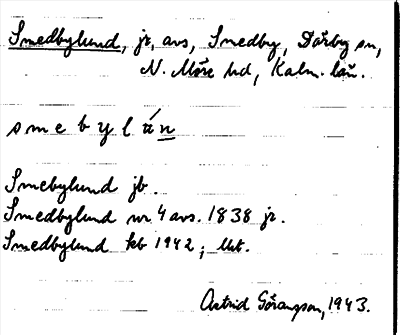 Smedbylund, jr, avs, Smedby, Dörby sn,
N. Möre hd, Kalm. län.
smebylún
Smebylund jb.
Smedbylund nr. 4 avs. 1838 jr.
Smedbylund kb 1942; Utt.
Astrid Göransson, 1943.